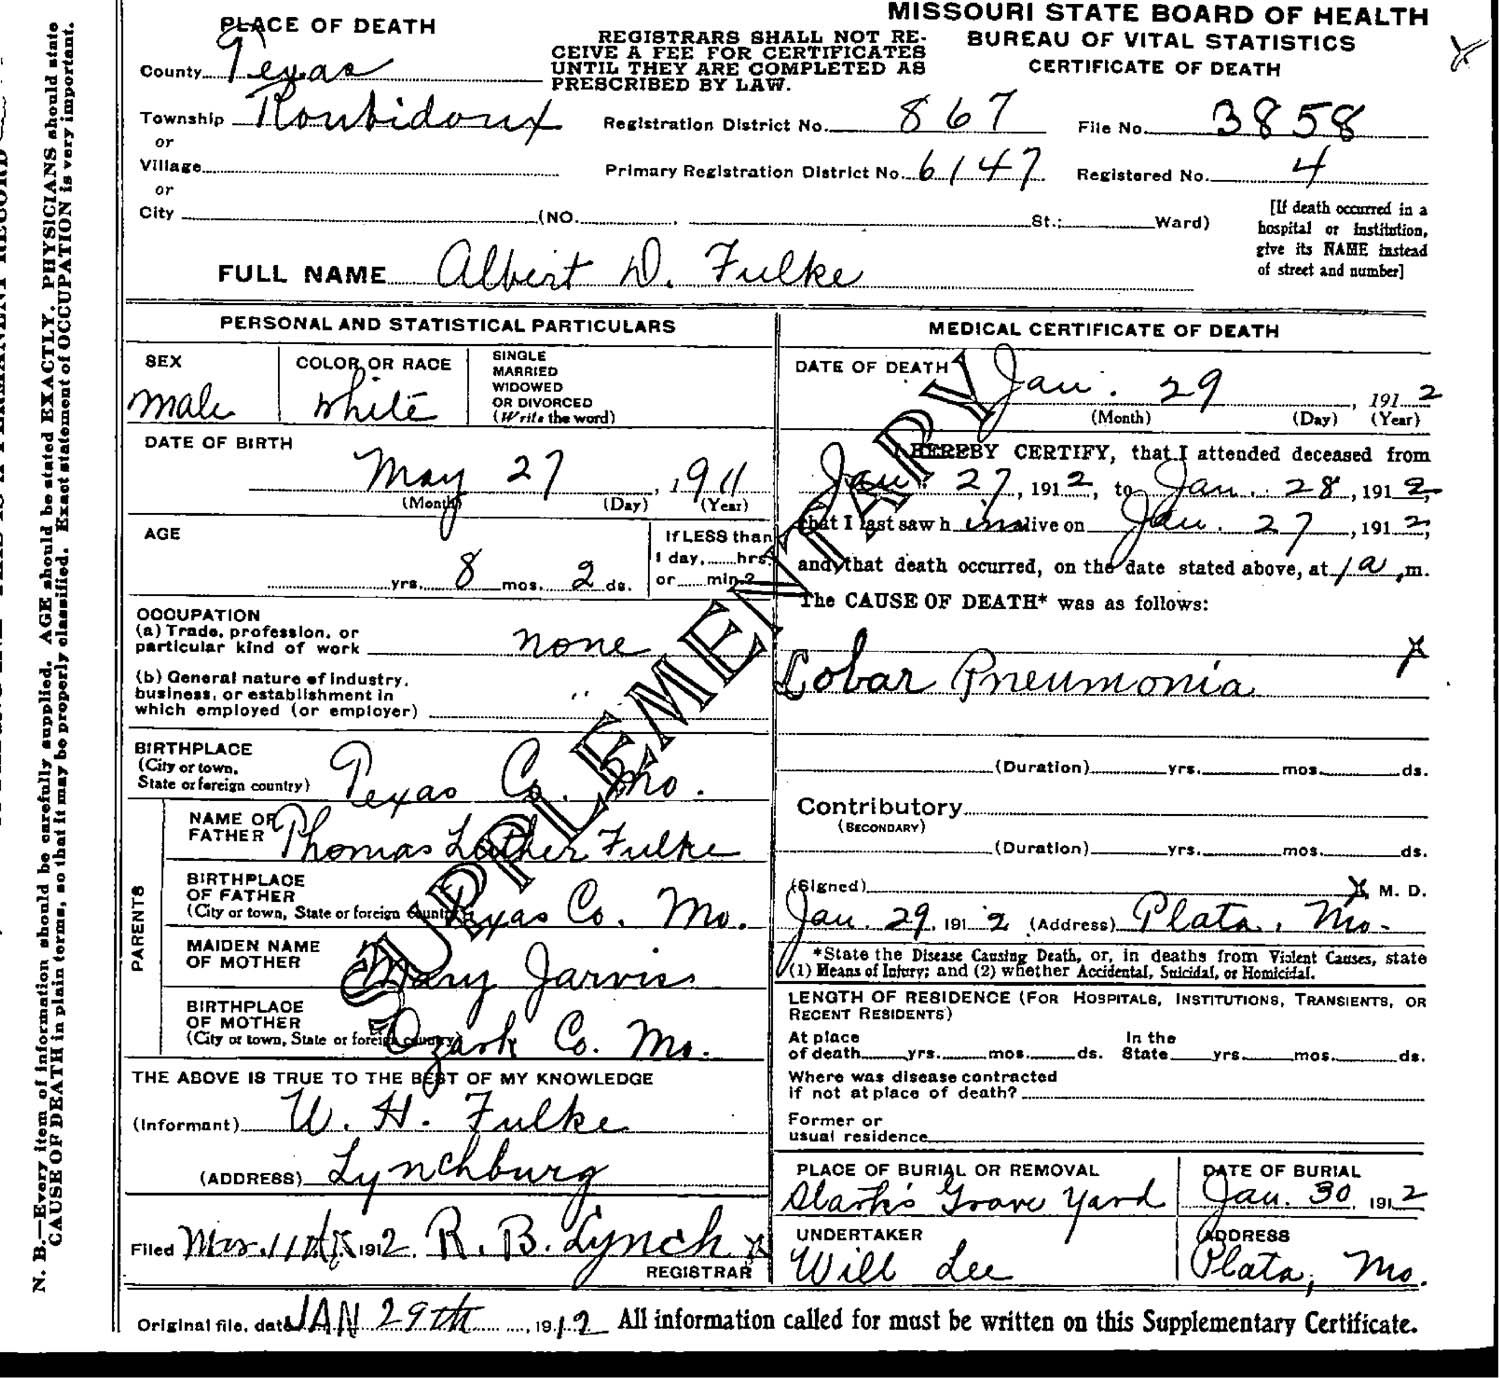 MISSOURI STATE BOARD OF HEALTH
BUREAU OF VITAL STATISTICS
CERTIFICATE OF DEATH
PLACE OF DEATH
REGISTRARS SHALL NOT RE-
CEIVE A FEE FOR CERTIFICATES
UNTIL THEY ARE COMPLETED AS
PRESCRIBED BY LAW.
County Texas
Township Roubidoux Registration District No. 867 File No. 3858
or
Village Primary Registration District No. 6147 Registered No. 4
or
City (NO. St.; Ward)
[If death occurred in a
hospital or institution,
give its NAME instead
of street and number]
FULL NAME Albert D. Fulke
PERSONAL AND STATISTICAL PARTICULARS
SEX
male
COLOR OR RACE
white
SINGLE
MARRIED
WIDOWED
OR DIVORCED
(Write the word)
DATE OF BIRTH
May 27, 1911
(Month) (Day) (Year)
AGE
yrs. 8 mos. 2 ds.
If LESS than
1 day, hrs.
or min.?
OCCUPATION
(a) Trade, profession, or
particular kind of work none
(b) General nature of industry,
business, or establishment in
which employed (or employer) "
BIRTHPLACE
(City or town,
State or foreign country) Texas Co. Mo.
PARENTS
NAME OF
FATHER Thomas Luther Fulke
BIRTHPLACE
OF FATHER
(City or town, State or foreign country) Texas Co. Mo.
MAIDEN NAME
OF MOTHER Mary Jarvis
BIRTHPLACE
OF MOTHER
(City or town, State or foreign country) Ozark Co. Mo.
THE ABOVE IS TRUE TO THE BEST OF MY KNOWLEDGE
(Informant) W. H. Fulke
(ADDRESS) Lynchburg
Filed Mar. 11th 1912. R. B. Lynch X
REGISTRAR
MEDICAL CERTIFICATE OF DEATH
DATE OF DEATH Jan. 29, 1912
(Month) (Day) (Year)
I HEREBY CERTIFY, that I attended deceased from
Jan. 27, 1912, to Jan. 28, 1912,
that I last saw h im alive on Jan. 27, 1912,
and that death occurred, on the date stated above, at 1 a m.
The CAUSE OF DEATH* was as follows:
X
Lobar Pneumonia
(Duration) yrs. mos. ds.
Contributory
(SECONDARY)
(Duration) yrs. mos. ds.
(Signed) X M. D.
Jan. 29, 1912 (Address) Plato, Mo.
*State the Disease Causing Death, or, in deaths from Violent Causes, state
(1) Means of Injury; and (2) whether Accidental, Suicidal, or Homicidal.
LENGTH OF RESIDENCE (FOR HOSPITALS, INSTITUTIONS, TRANSIENTS, OR
RECENT RESIDENTS)
At place In the
of death yrs. mos. ds. State yrs. mos. ds.
Where was disease contracted
if not at place of death?
Former or
usual residence
PLACE OF BURIAL OR REMOVAL
Slark's Grave Yard
DATE OF BURIAL
Jan. 30, 1912
UNDERTAKER
Will Lee
ADDRESS
Plato, Mo.
Original file, date JAN 29th, 1912 All information called for must be written on this Supplementary Certificate.
SUPPLEMENTARY
N. B.—Every item of information should be carefully supplied. AGE should be stated EXACTLY. PHYSICIANS should state
CAUSE OF DEATH in plain terms, so that it may be properly classified. Exact statement of OCCUPATION is very important.